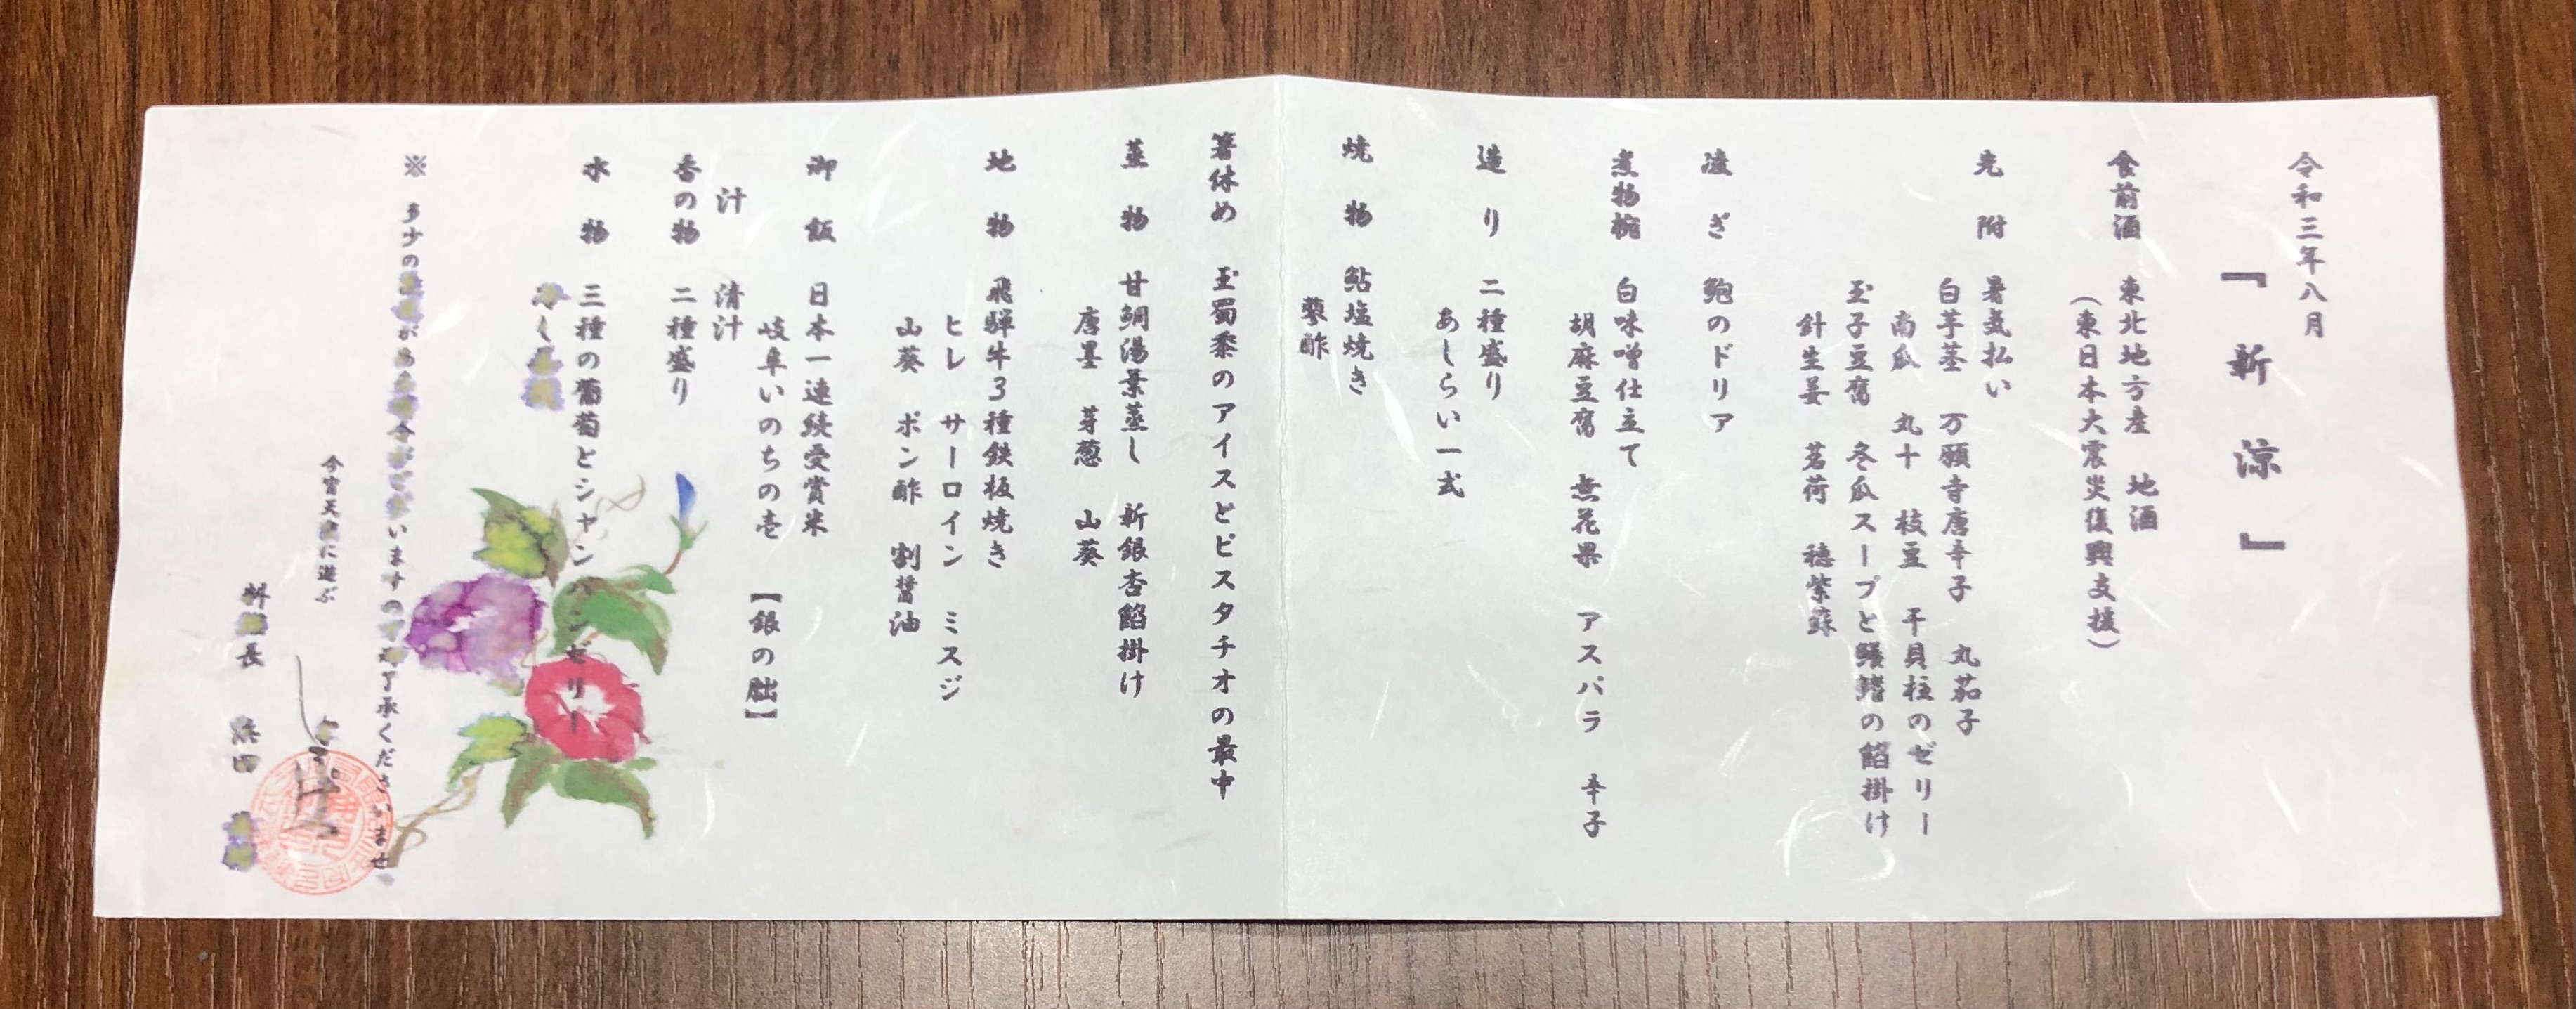 令和三年八月
『新涼』
食前酒 東北地方産 地酒
（東日本大震災復興支援）
先附 暑気払い
白芋茎 万願寺唐辛子 丸茄子
南瓜 丸十 枝豆 干貝柱のゼリー
玉子豆腐 冬瓜スープと鱶鰭の餡掛け
針生姜 茗荷 穂紫蘇
凌ぎ 鮑のドリア
煮物椀 白味噌仕立て
胡麻豆腐 無花果 アスパラ 辛子
造り 二種盛り
あしらい一式
焼物 鮎塩焼き
蓼酢
箸休め 玉蜀黍のアイスとピスタチオの最中
蒸物 甘鯛湯葉蒸し 新銀杏餡掛け
唐墨 芽葱 山葵
地物 飛騨牛3種鉄板焼き
ヒレ サーロイン ミスジ
山葵 ポン酢 割醤油
御飯 日本一連続受賞米
岐阜いのちの壱 【銀の朏】
汁 清汁
香の物 二種盛り
水物 三種の葡萄とシャンパンゼリー
※ 多少の が いますので了承くださいませ
今宵天 に遊ぶ
料 長 浜田